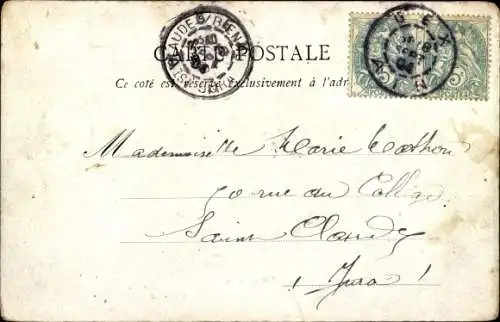 CARTE POSTALE
Ce coté est réservé exclusivement à l'adr
Mademoiselle Marie Mathon
70 rue du Collège
Saint Claude
(Jura)
GEX
AIN